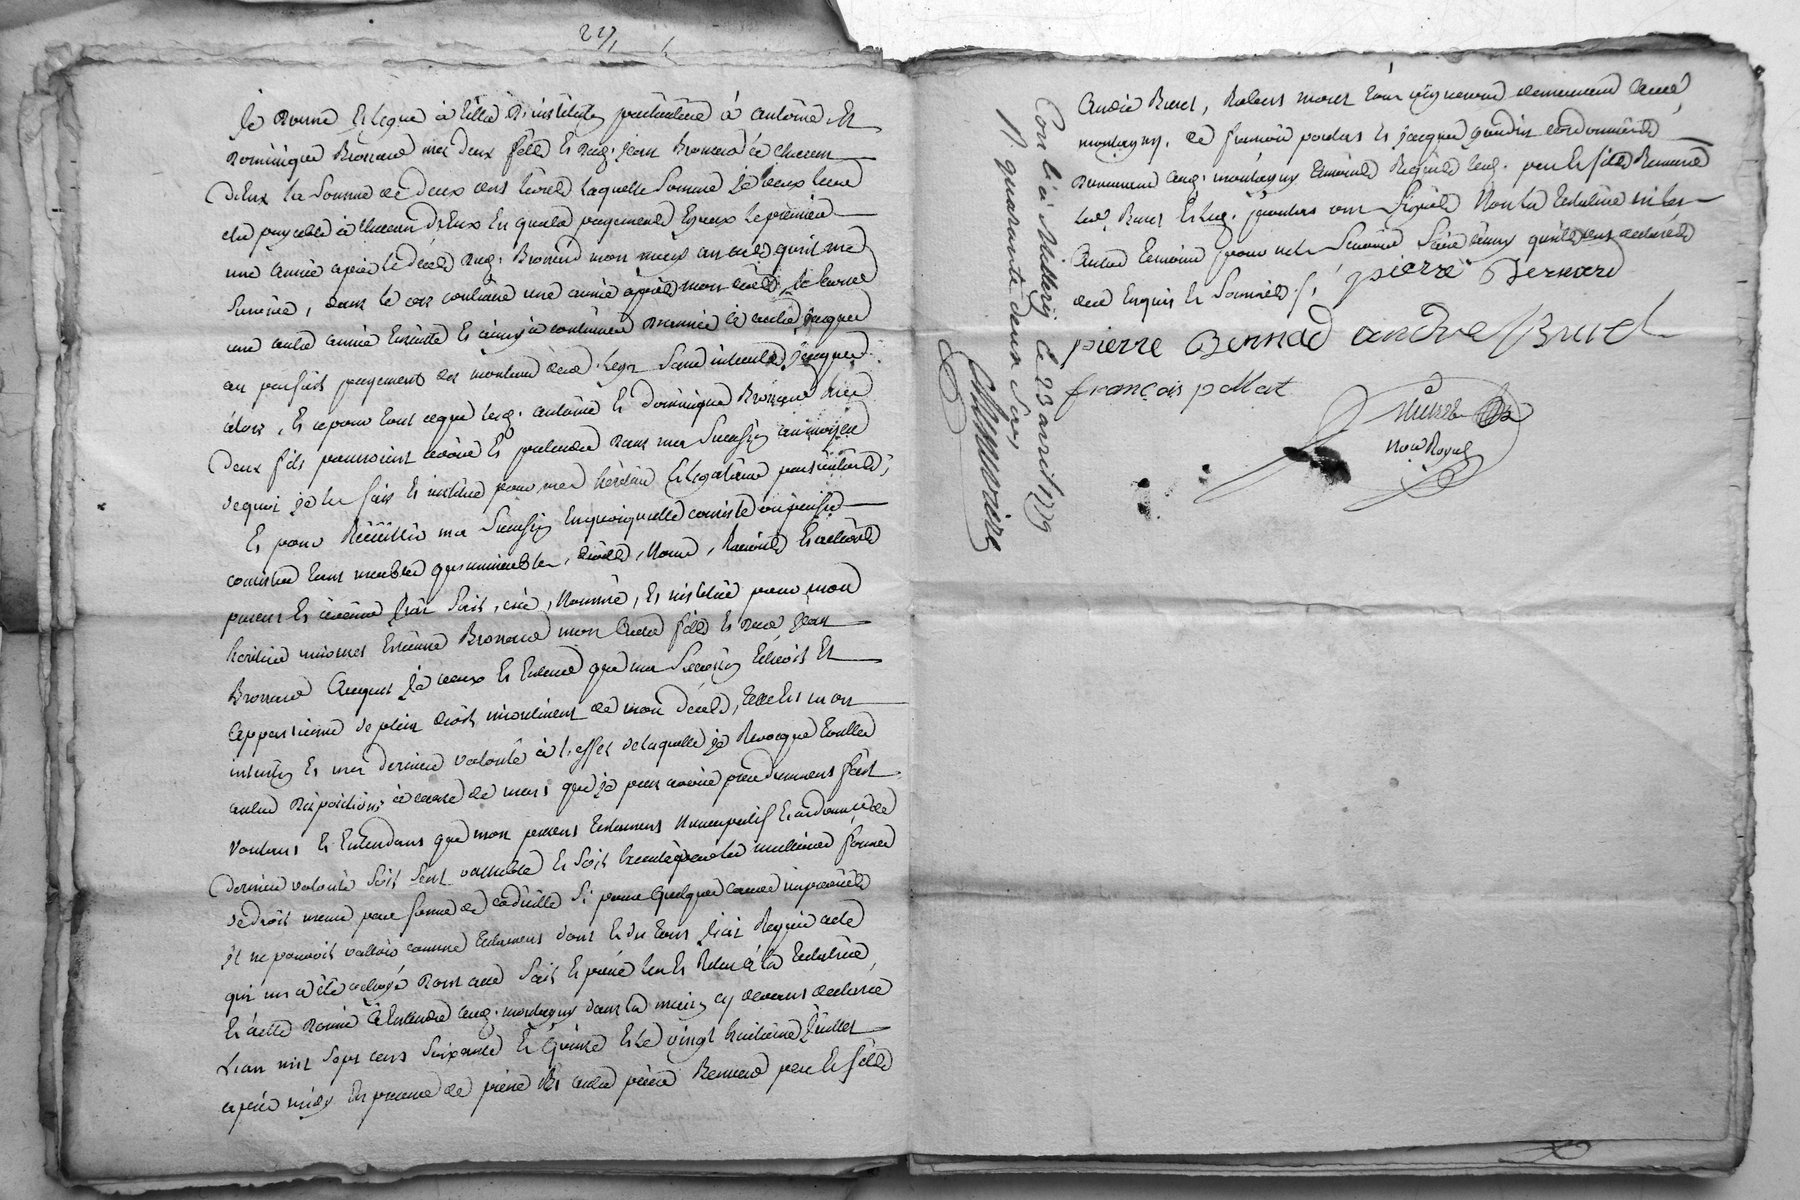 227
Je donne et legue à titre d'institution particulière à antoine et
dominique Bronnand mes deux fils et dud. jean Bronnand à chacun
d'eux la somme de deux cens livres laquelle somme je veux leur
etre payable à chacun d'eux en quatre payements egaux le premier
une année après le décès dud. Bronnand mon mary au cas qu'il me
survive, dans le cas contraire une année après mon décès, le second
une autre année ensuitte et ainsy à continuer d'année à autre jusques
au parfait payement du montant dud. legs sans interets jusques
alors, et ce pour tout ce que lesd. antoine et dominique Bronnand mes
deux fils pourroient avoir et pretendre dans ma succession au moyen
de quoi je les fais et institue pour mes héritiers et legataires particuliers,
Et pour recüeillir ma succession en quoi qu'elle consiste ou puisse
consister tant meubles qu'immeubles, droits, noms, raisons et actions
presens et avenir j'ai fait, créé, nommé, et institué pour mon
heritier universel Etienne Bronnand mon autre fils et dud. jean
Bronnand auquel je veux et entend que ma succession échoit et
appartienne de plein droit incontinent de mon décès, telle est mon
intention et ma derniere volonté à l'effet de laquelle je revocque toutes
autres dispositions à cause de mort que je peux avoir précedemment fait
voulant et entendant que mon present testament nuncupatif et ordonnance de
derniere volonté soit seul vallable et soit executé par les meilleures formes
de droit meme par forme de codicille si pour quelque cause imprevüe
il ne pouvoit valloir comme testament dont et du tout j'ai requis acte
qui m'a été octroyé dont acte fait et passé lu et relu à la testatrice
et à elle donné à entendre aud. montagny dans la maison cy devant declarée
L'an mil sept cens soixante et quinze et le vingt huitieme juillet
apres midy en presence de pierre et autre pierre Bernard pere et fils
andré Buret, Robert mores tous vignerons demeurant aud.
montagny, de francois pollat et jacques cordonnier
demeurant aud. montagny temoins requis lesd. pere et fils Bernard
led. Buret et led. pollat ont signé non la testatrice ni les
autres temoins pour ne le savoir faire ainsy qu'ils ont declaré
de ce enquis et sommés /. pierre Bernard
pierre Bernad andre Buret
françois pollat
no.re Royal
Con.lé à Millery le 23 avril 1779
R quarante deux sols